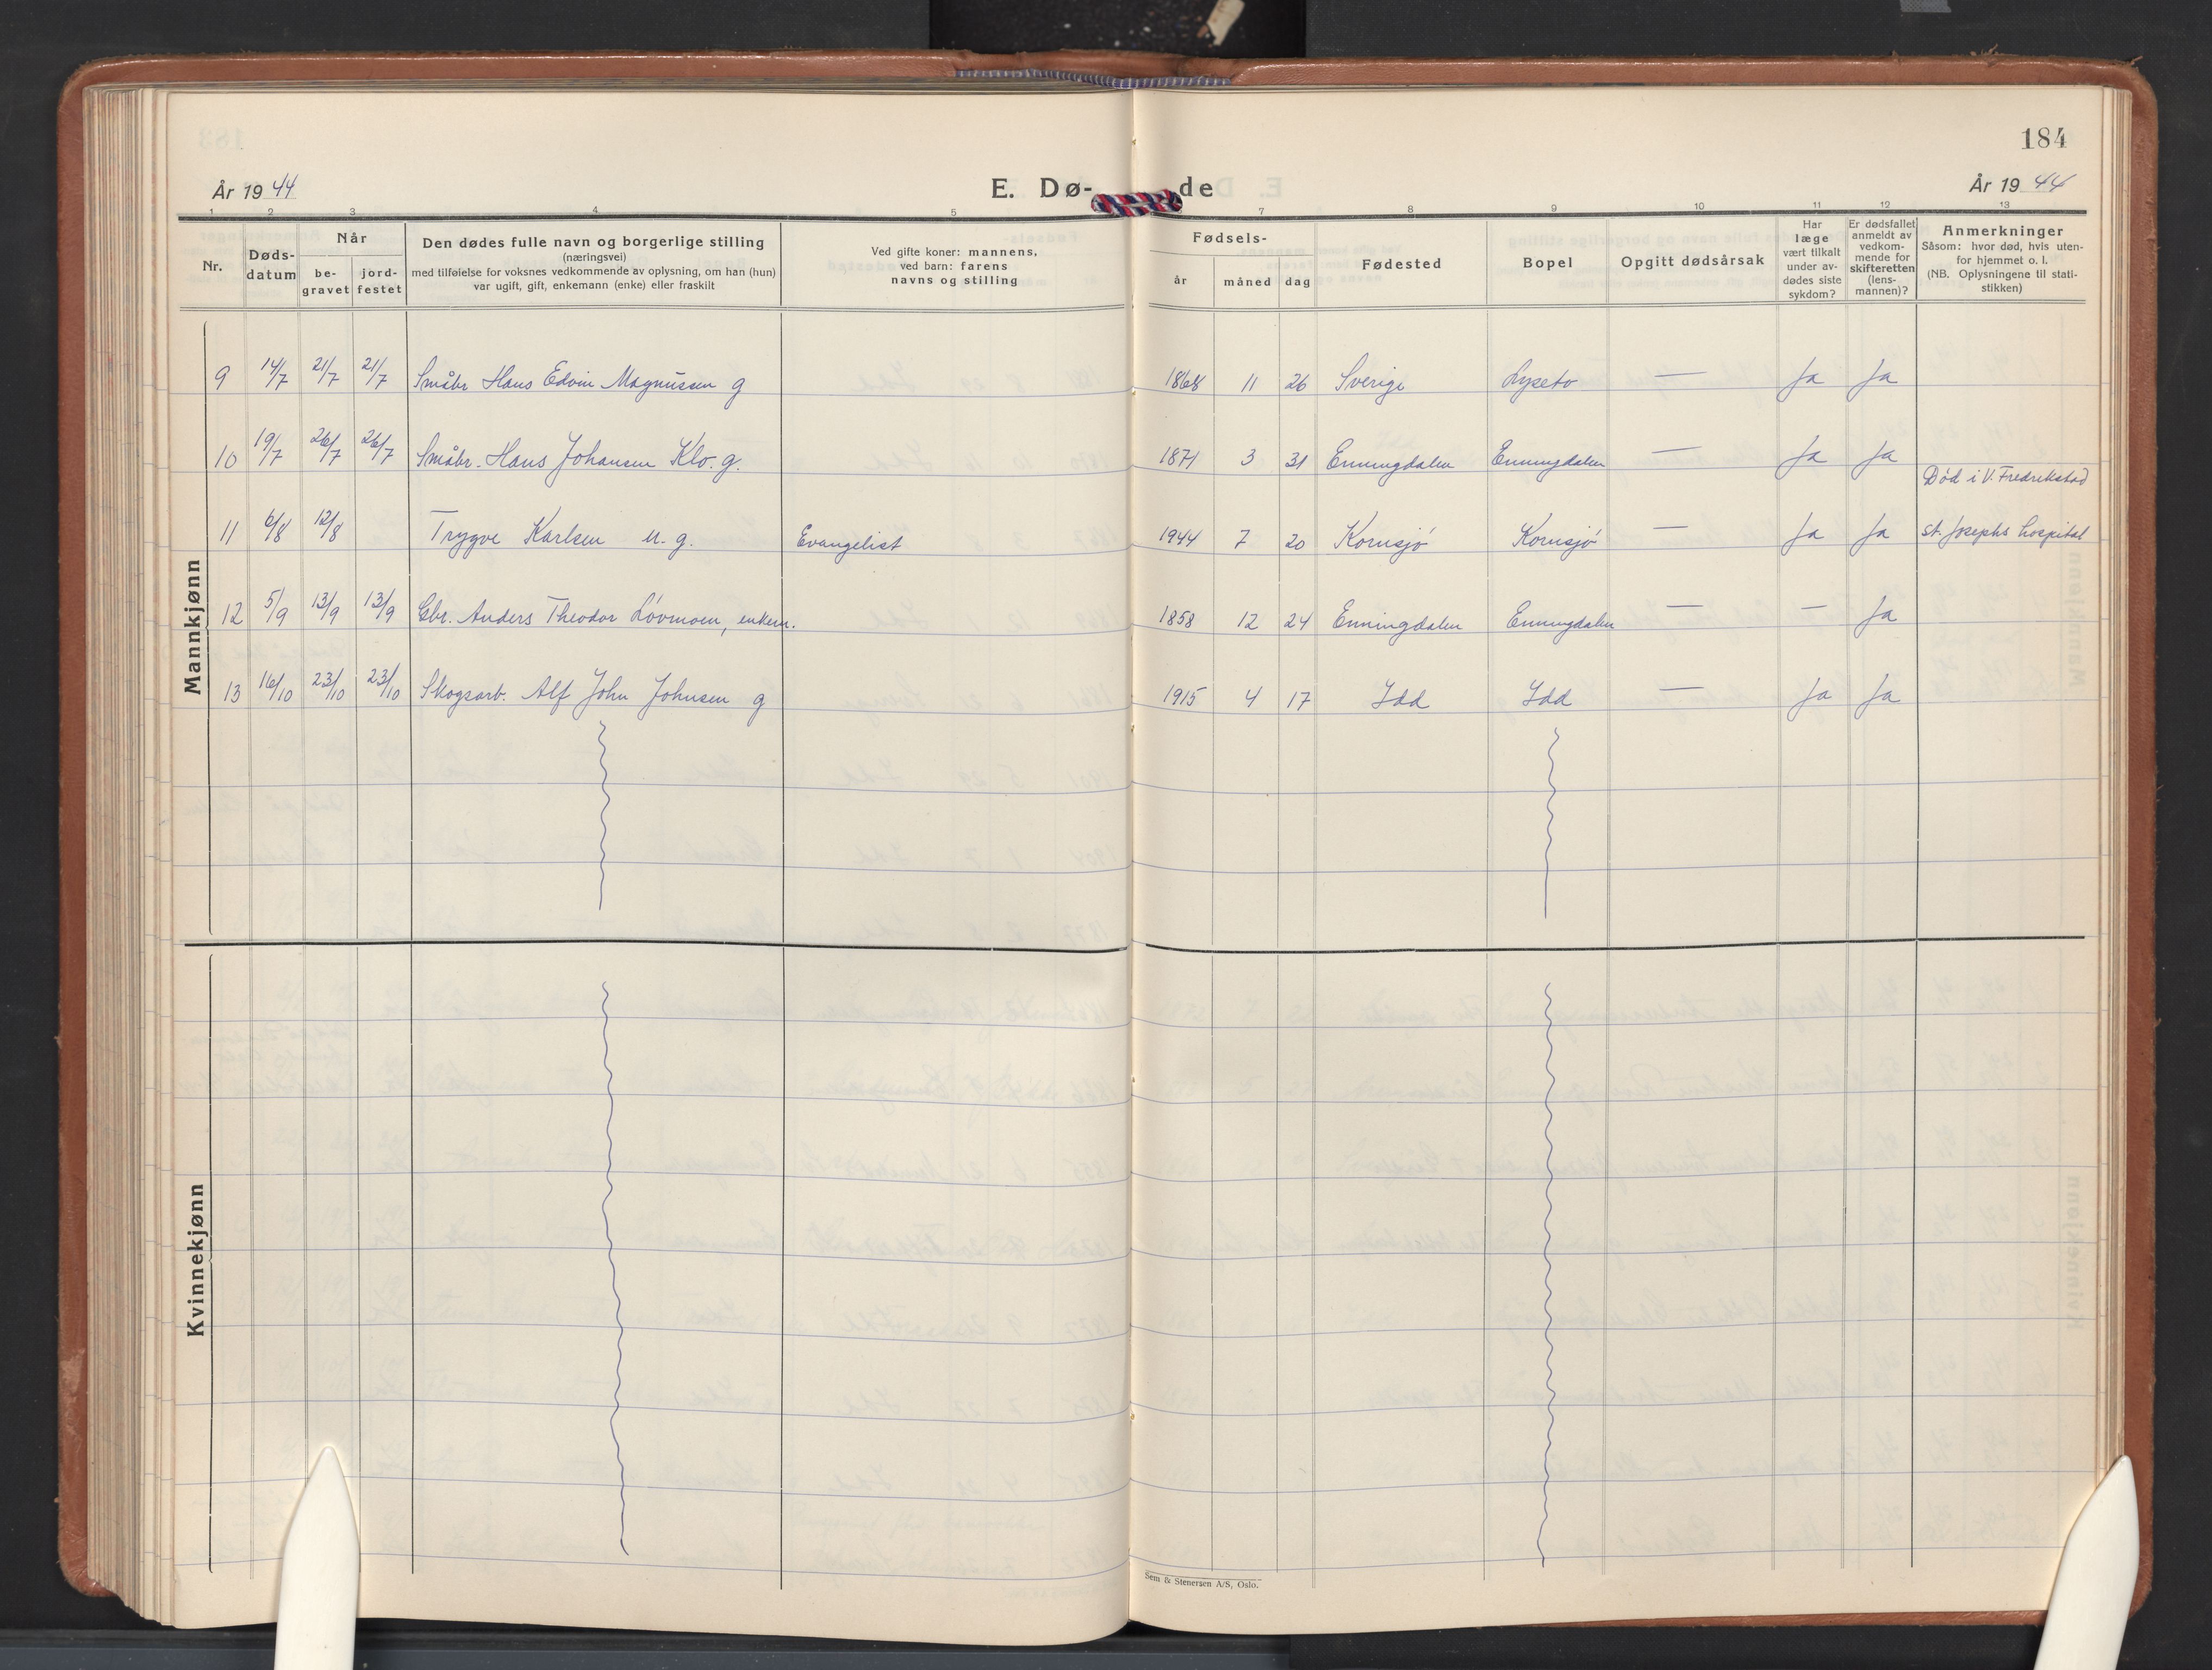 184
År 1944
E. Dø-
de
År 1944
1 2 3 4 5 7 8 9 10 11 12 13
Nr.
Døds-
datum
Når
be-
gravet
jord-
festet
Den dødes fulle navn og borgerlige stilling
(næringsvei)
med tilføielse for voksnes vedkommende av oplysning, om han (hun)
var ugift, gift, enkemann (enke) eller fraskilt
Ved gifte koner: mannens,
ved barn: farens
navns og stilling
Fødsels-
år måned dag
Fødested
Bopel
Opgitt dødsårsak
Har
læge
vært tilkalt
under av-
dødes siste
sykdom?
Er dødsfallet
anmeldt av
vedkom-
mende for
skifteretten
(lens-
mannen)?
Anmerkninger
Såsom: hvor død, hvis uten-
for hjemmet o. l.
(NB. Oplysningene til stati-
stikken)
Mannkjønn
9 14/7 21/7 21/7 Småbr Hans Edvin Magnussen g 1868 11 26 Sverige Lyseto — Ja Ja
10 19/7 26/7 26/7 Småbr. Hans Johansen Klo. g. 1871 3 31 Enningdalen Enningdalen — Ja Ja
Død i V. Fredrikstad
11 6/8 12/8 Trygve Karlsen u. g. Evangelist 1944 7 20 Kornsjø Kornsjø — Ja Ja St. Josephs hospital
12 5/9 13/9 13/9 Gbr. Anders Theodor Løvmoen, enkem. 1858 12 24 Enningdalen Enningdalen — — Ja
13 16/10 23/10 23/10 Skogsarb. Alf John Johnsen g 1915 4 17 Idd Idd — Ja Ja
Kvinnekjønn
Sem & Stenersen A/S, Oslo.